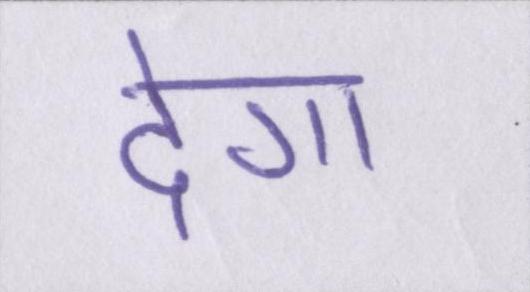 देगा